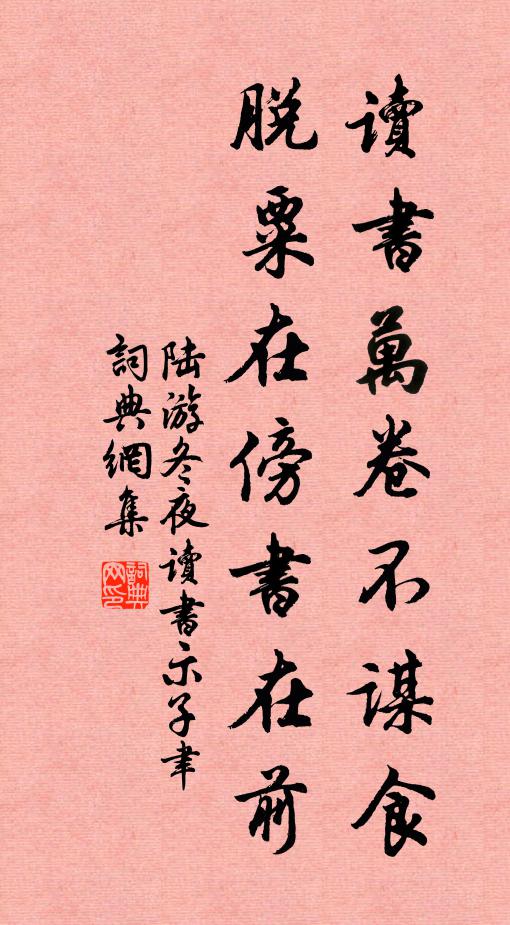 讀書萬卷不謀食
脫粟在傍書在前
陆游冬夜讀書示子聿
詞典網集
詞典網印